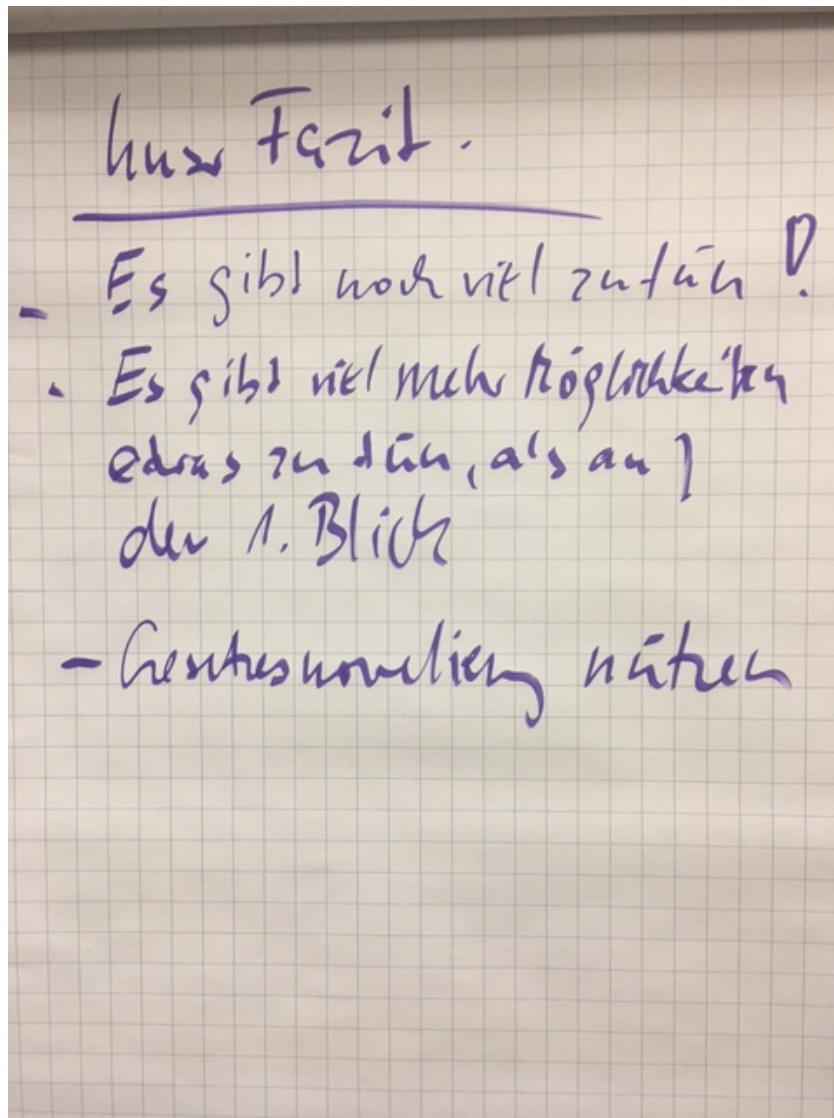 Unser Fazit.
- Es gibt noch viel zu tun!
- Es gibt viel mehr Möglichkeiten
etwas zu tun, als auf
den 1. Blick
- Gesetzesnovellierung nutzen